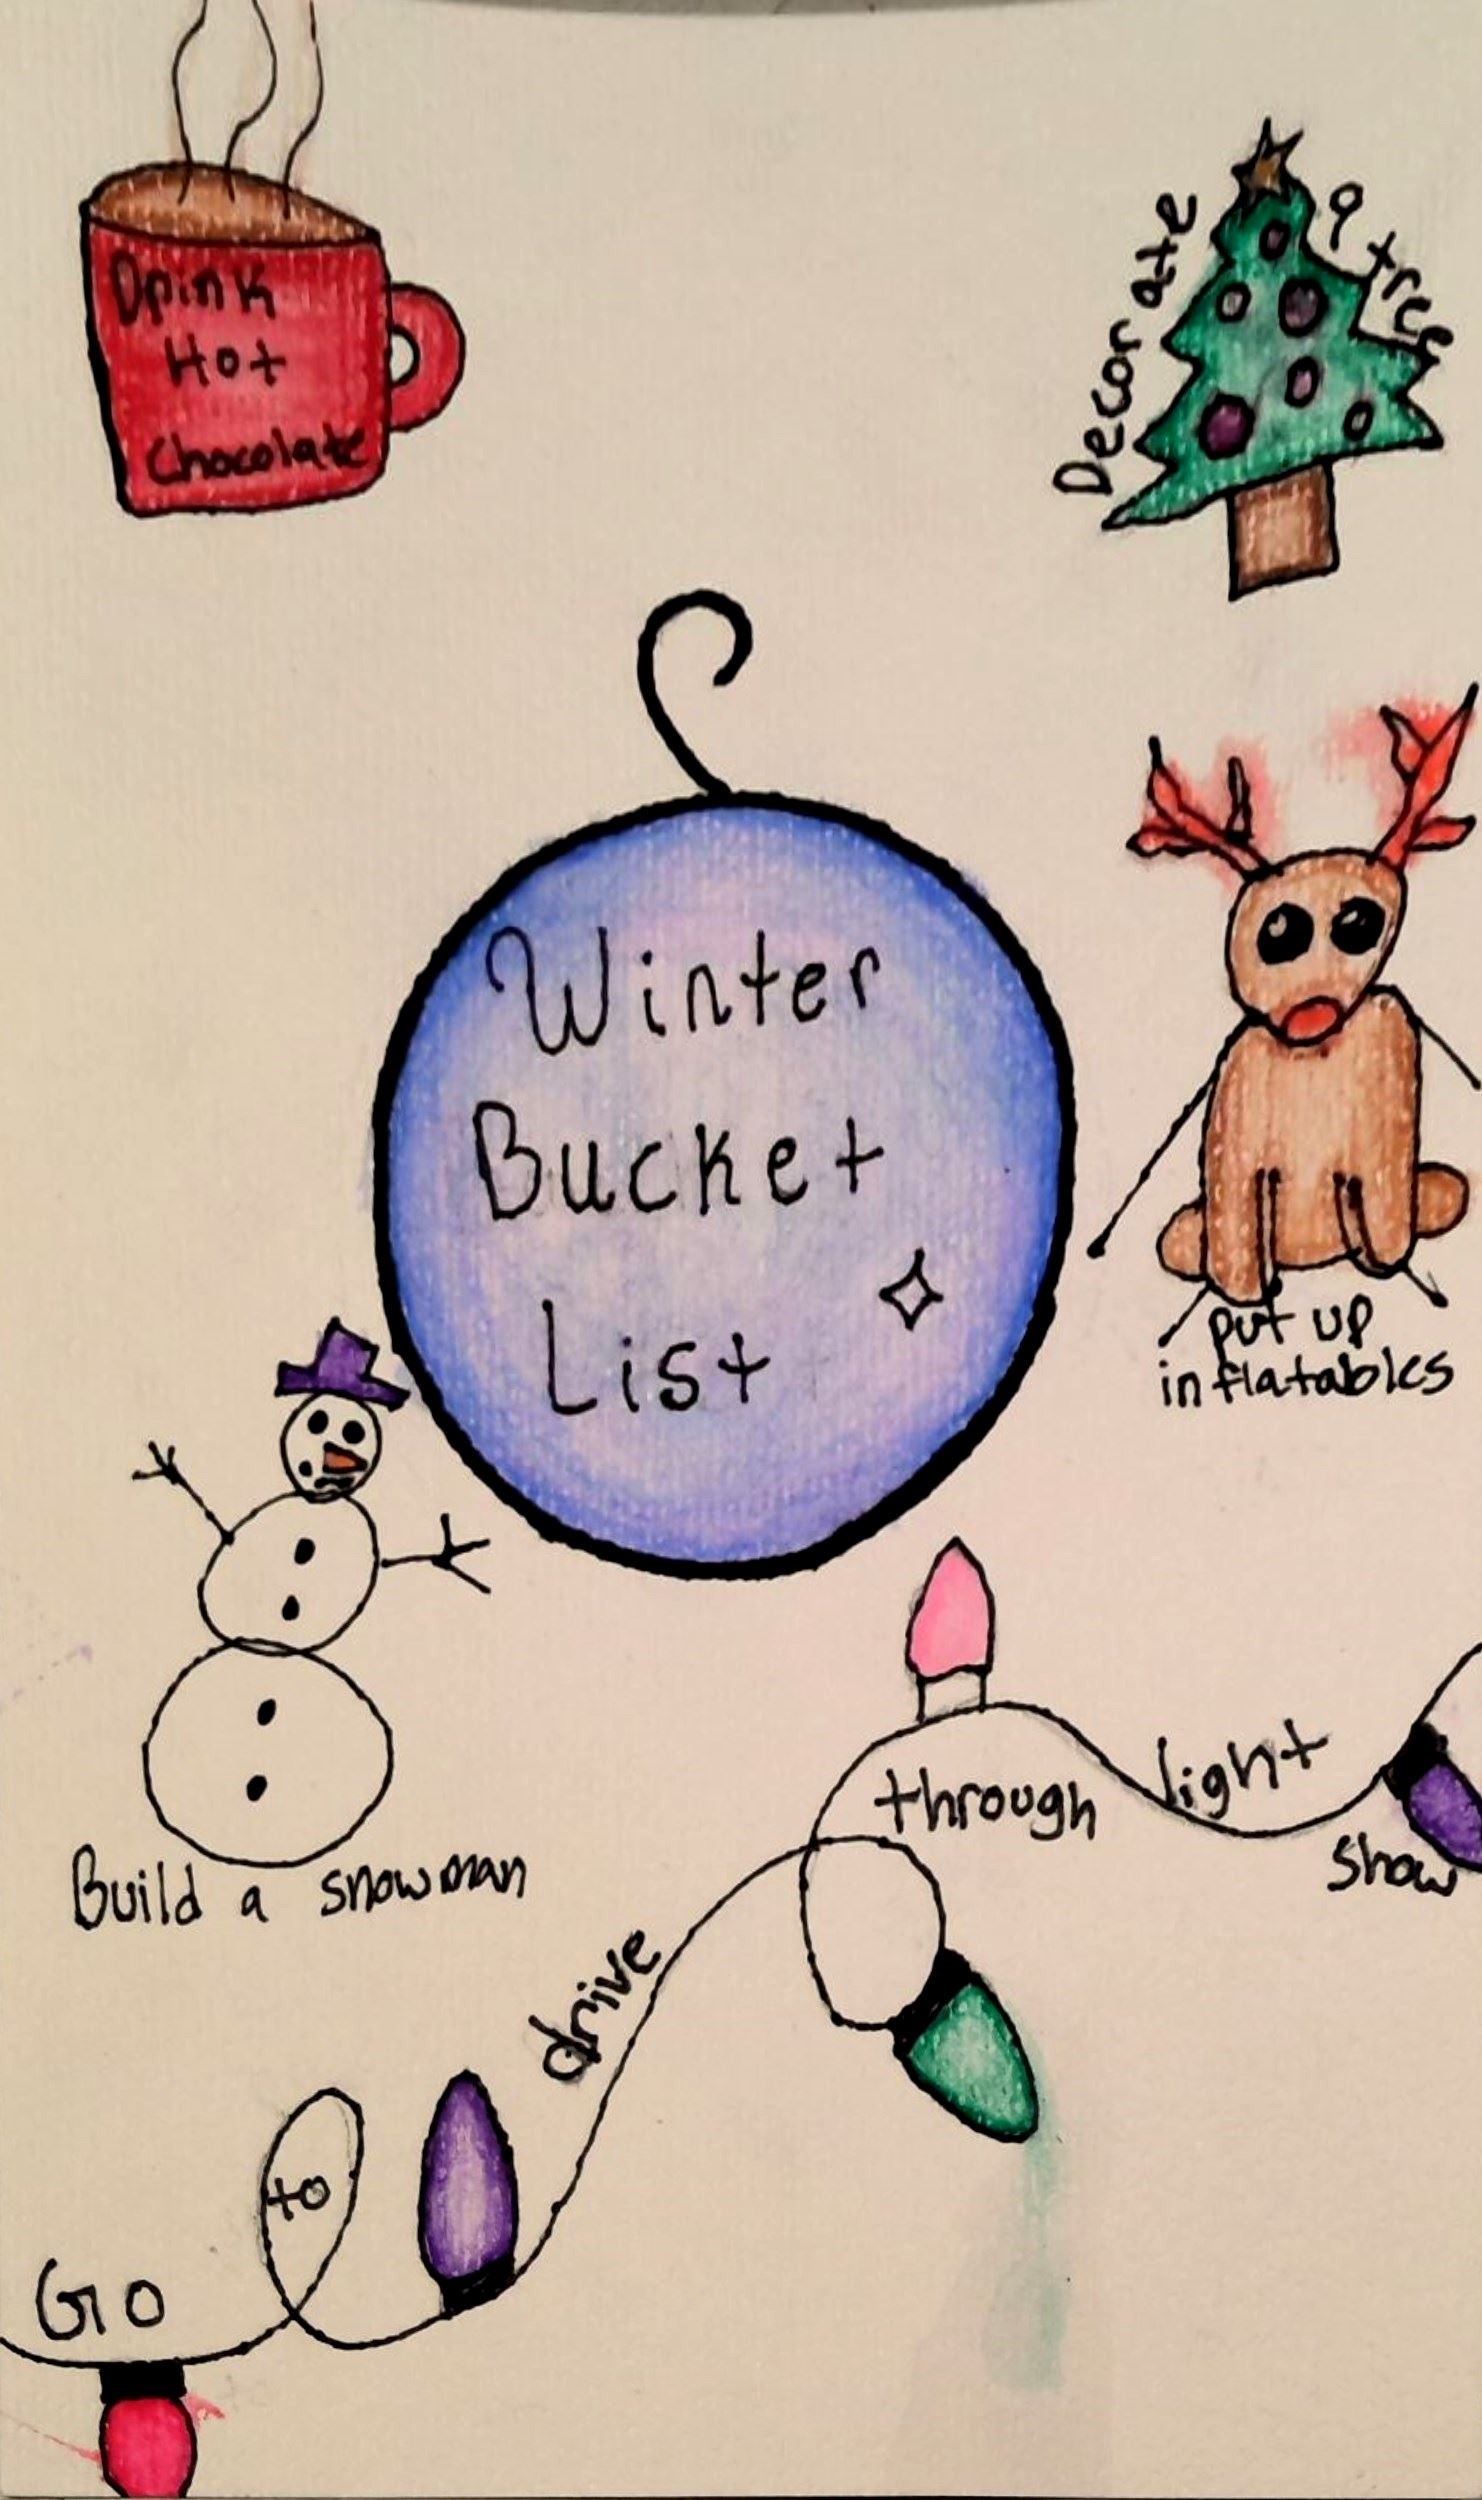 Drink
Hot
Chocolate
Decorate a tree
Winter
Bucket
List
put up
inflatables
Build a snowman
Go to drive through light show